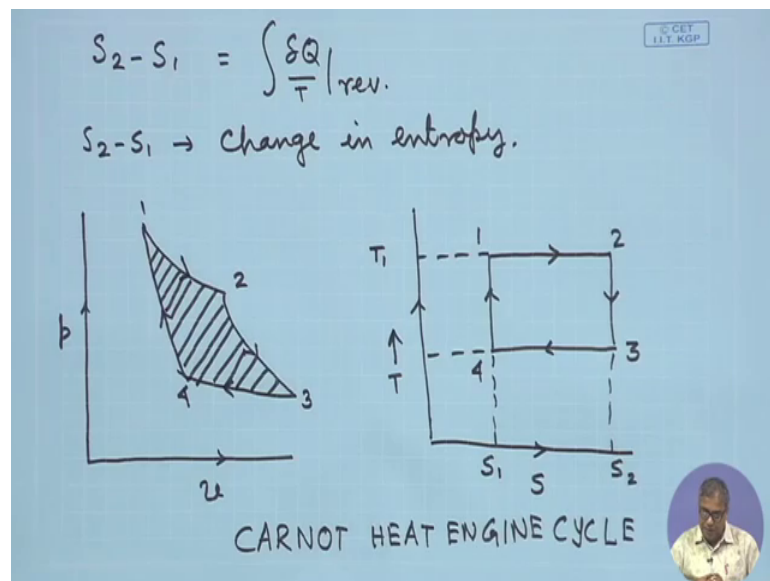 © CET
I.I.T. KGP
S₂ – S₁ = ∫ δQ/T |rev.
S₂ – S₁ → change in entropy.
1
2
3
4
p
v
T₁
1
2
3
4
T
S₁
S
S₂
CARNOT HEAT ENGINE CYCLE